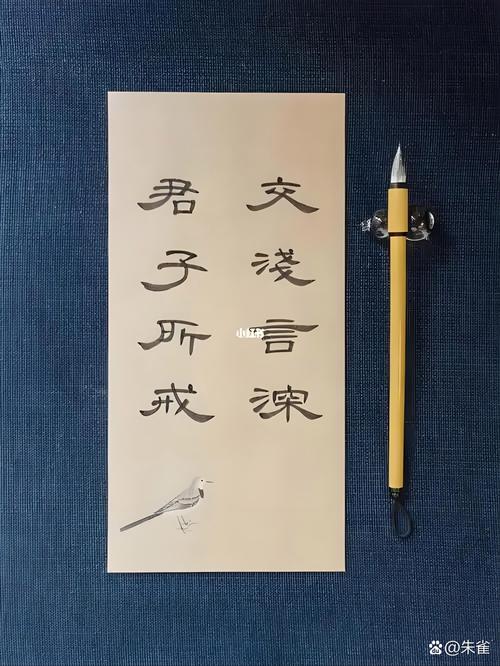 交淺言深
君子所戒
小红书
@朱雀